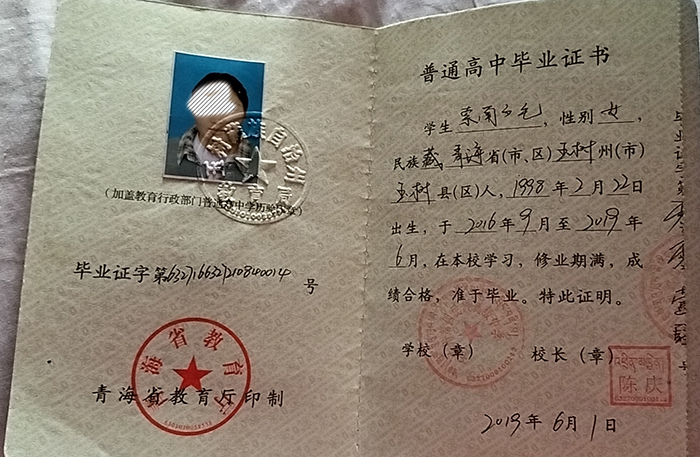 (加盖教育行政部门普通高中学历验印章)
毕业证字第 号
青海省教育厅印制
青海省教育厅
普通高中毕业证书
学生 , 性别 女,
民族 藏 青海省(市、区) 玉树 州(市)
玉树 县(区)人, 1998 年 2 月 22 日
出生, 于 2016 年 9 月至 2019 年
6 月, 在本校学习, 修业期满, 成
绩合格, 准于毕业。特此证明。
学校(章) 校长(章)
陈庆
2019 年 6 月 1 日
毕业证字第
号